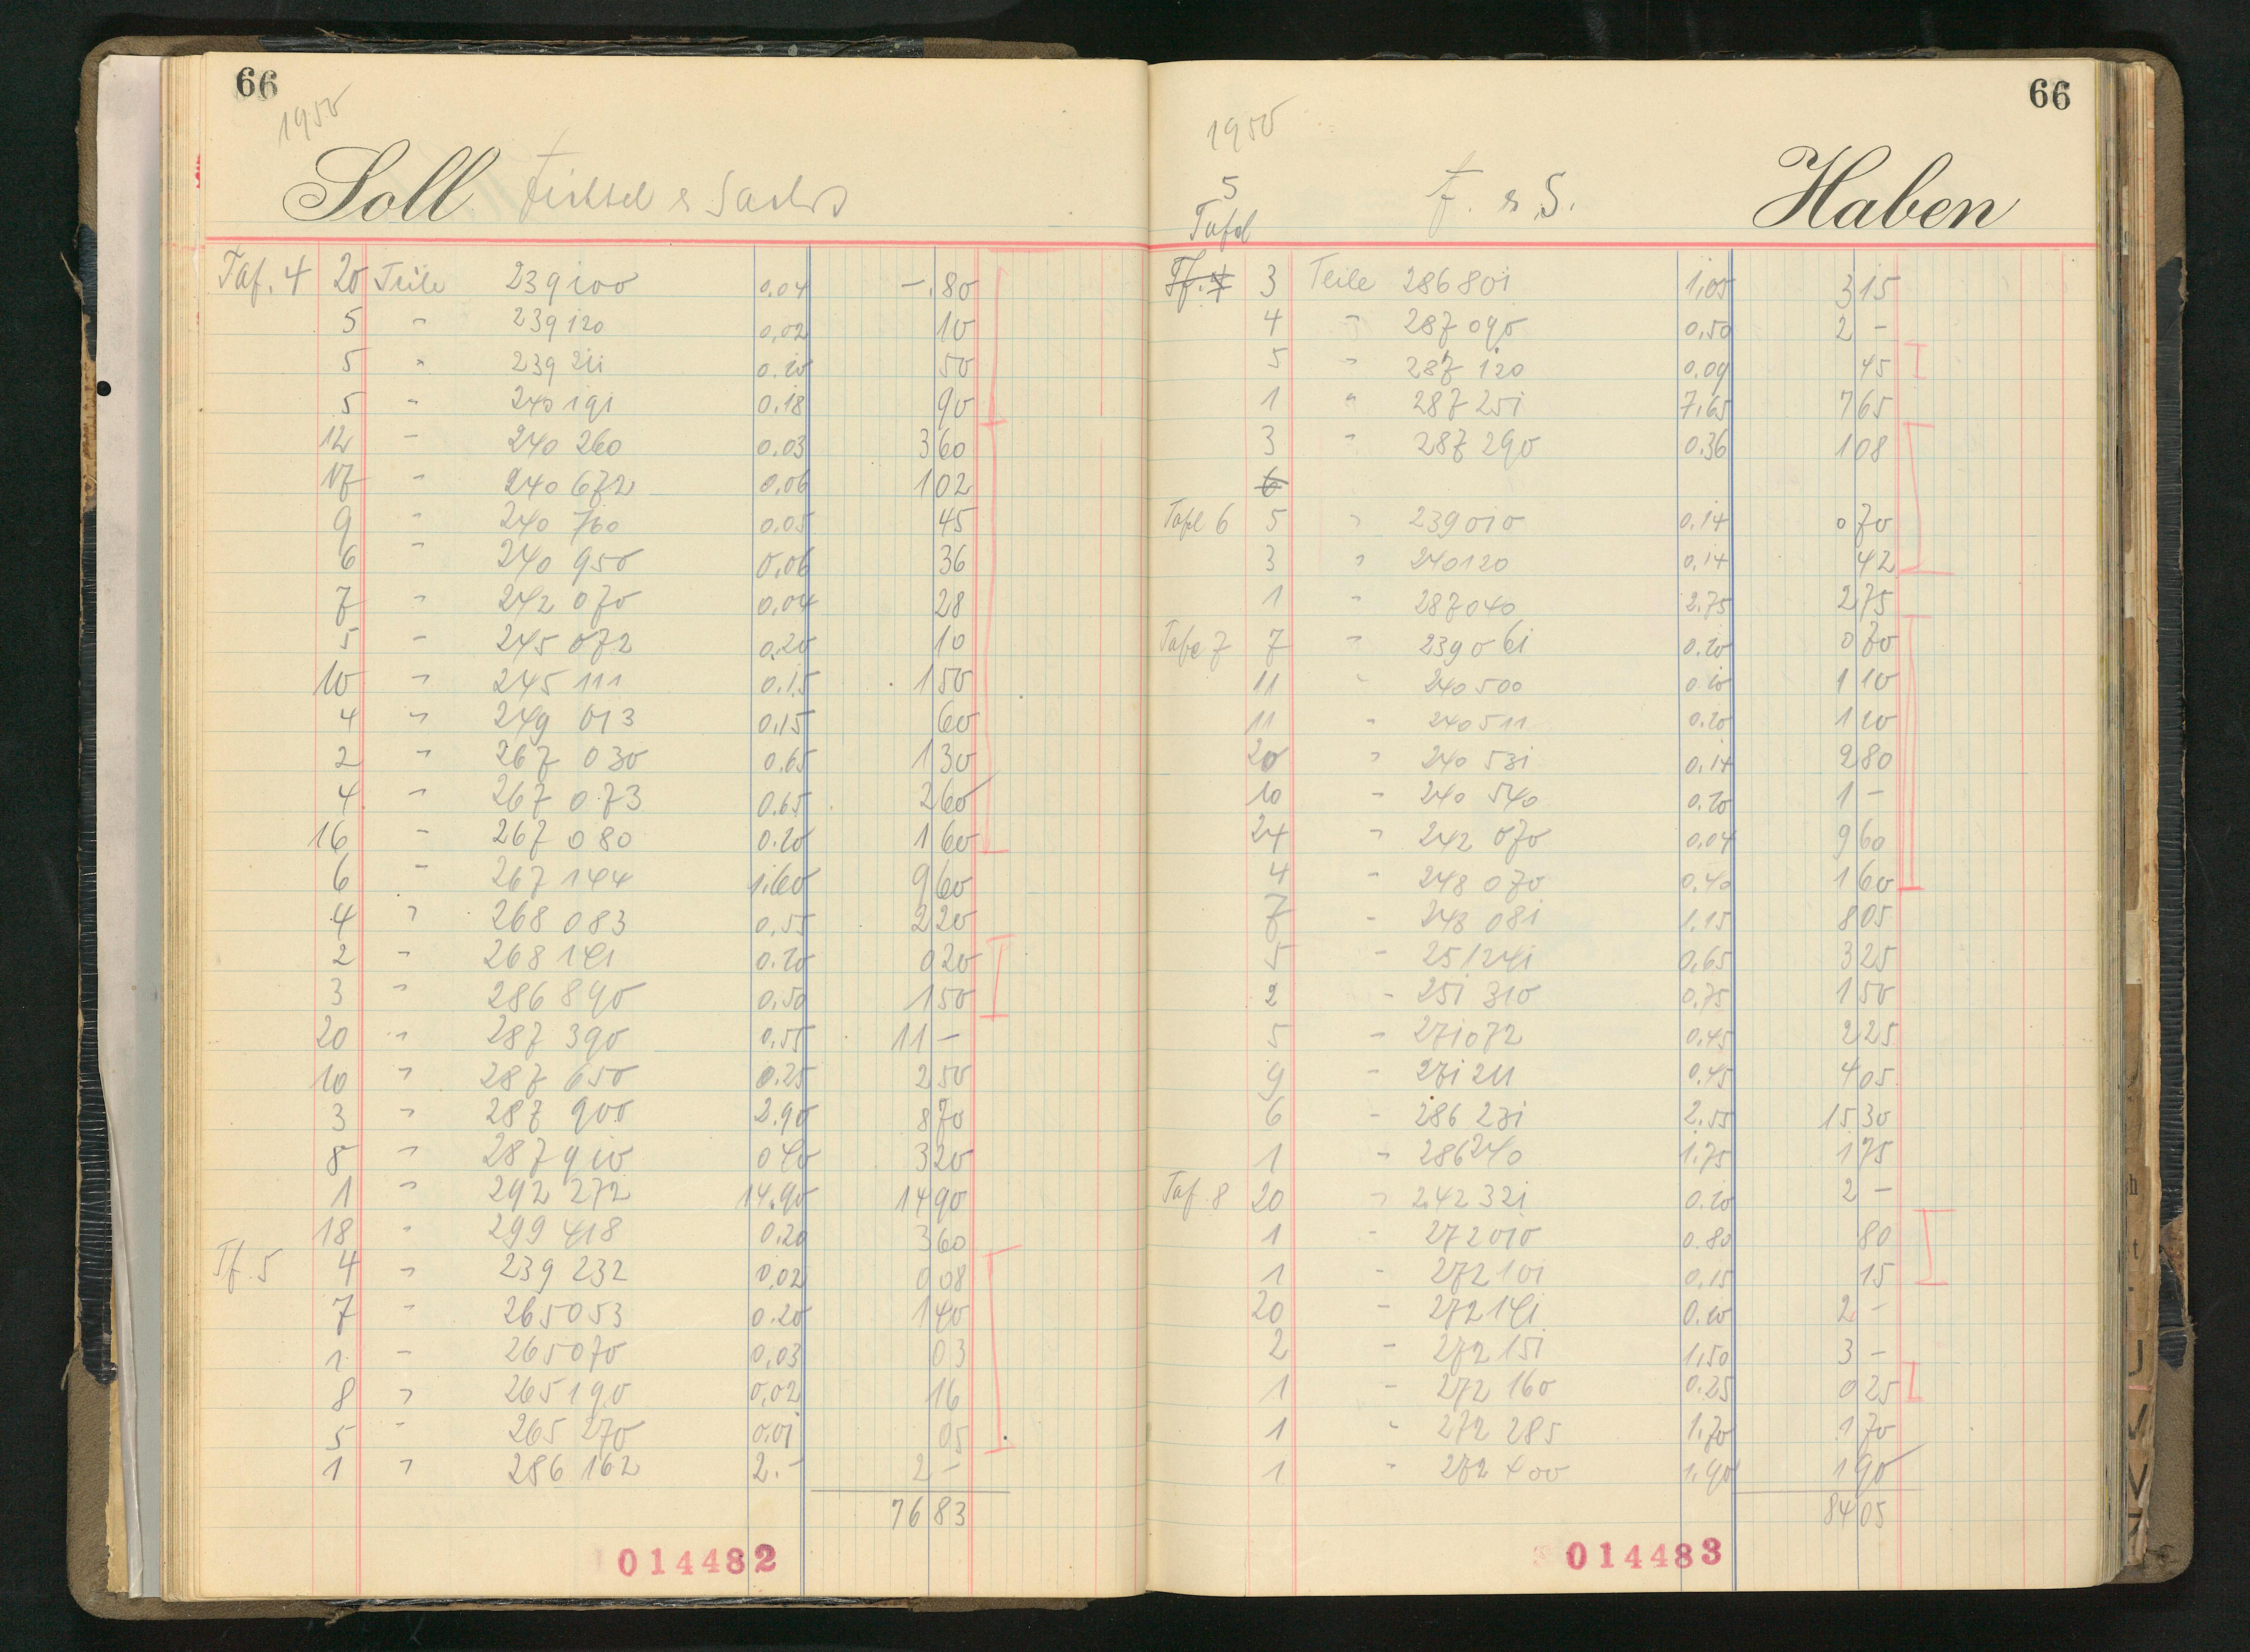 66
1950
Soll Fichtel & Sachs
Taf. 4 20 Teile 239100 0.04 -.80
5 " 239120 0,02 10
5 " 239211 0.10 50
5 " 240191 0.18 90
12 " 240260 0.03 360
17 " 240672 0,06 102
9 " 240760 0.05 45
6 " 240950 0,06 36
7 " 242070 0,04 28
5 " 245072 0,20 10
10 " 245111 0.15 150
4 " 249013 0,15 60
2 " 267030 0.65 130
4 " 267073 0.65 260
16 " 267080 0.10 160
6 " 267144 1.60 960
4 " 268083 0,55 220
2 " 268141 0.10 020
3 " 286890 0,50 150
20 " 287390 0,55 11 -
10 " 287650 0.25 250
3 " 287900 2.90 870
8 " 287910 040 320
1 " 292272 14.90 1490
18 " 299418 0.20 360
Tf. 5 4 " 239232 0,02 008
7 " 265053 0.20 140
1 " 265070 0,03 03
8 " 265190 0,02 16
5 " 265270 0,01 05
1 " 286162 2.- 2 -
7683
014482
66
1950
5
Tafel
F. & S. Haben
Tf. 4 3 Teile 286801 1,05 315
4 " 287090 0,50 2 -
5 " 287120 0.09 45
1 " 287251 7,65 765
3 " 287290 0.36 108
6
Tafel 6 5 " 239010 0.14 070
3 " 240120 0,14 42
1 " 287040 2.75 275
Tafe 7 7 " 239061 0.10 070
11 " 240500 0.10 110
11 " 240511 0.10 110
20 " 240531 0,14 280
10 " 240540 0.10 1 -
24 " 242070 0,04 960
4 " 248070 0,40 160
7 " 248081 1.15 805
5 " 251241 0,65 325
2 " 251310 0,75 150
5 " 271072 0.45 225
9 " 271211 0.45 405
6 " 286231 2.55 1530
1 " 286240 1.75 175
Taf. 8 20 " 242321 0.10 2 -
1 " 272010 0.80 80
1 " 272101 0,15 15
20 " 272141 0.10 2 -
2 " 272151 1,50 3 -
1 " 272160 0.25 025
1 " 272285 1.70 170
1 " 272400 1,90 190
8405
014483